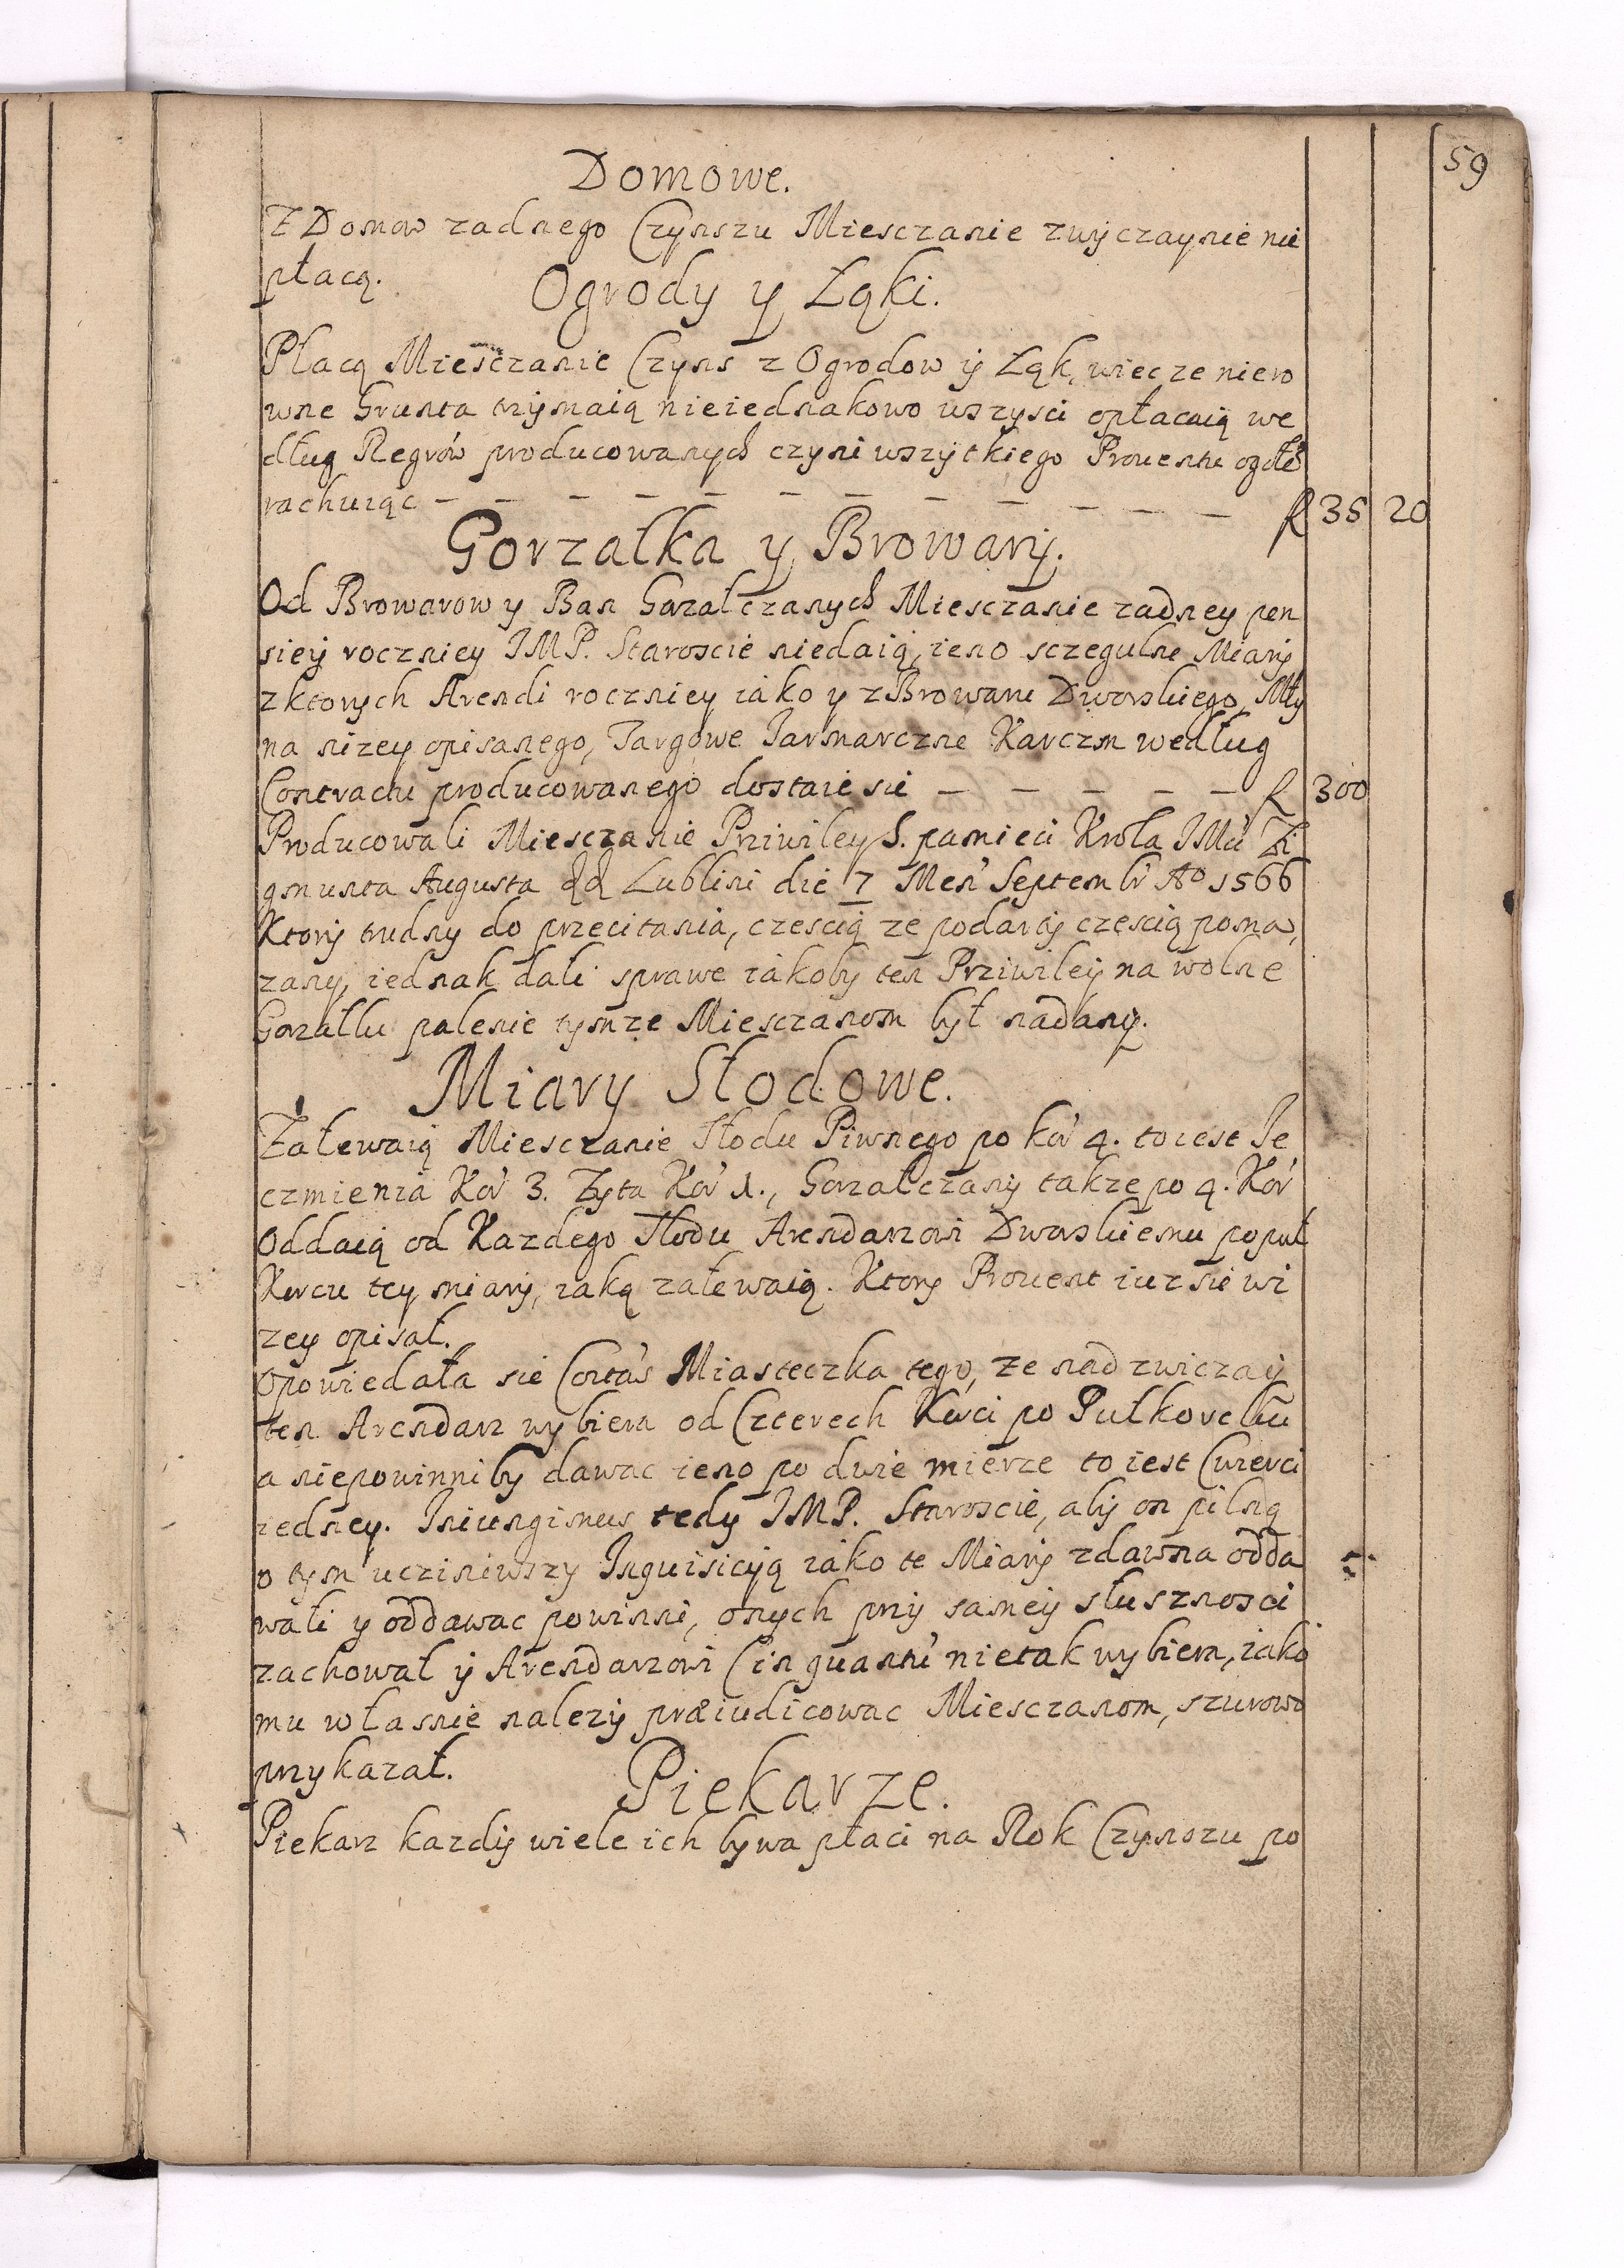 59
Domowe.
Z Domow zadnego Czynszu Miesczanie zwyczaynie nie
płacą.
Ogrody y Łąki.
Płacą Miesczanie Czyns z Ogrodow ÿ Łąk, wiec ze niero
wne Grunta trzÿmaią nieiednakowo wszysci opłacaią we
dług Regrów producowanych czyni wszÿtkiego Prouentu ogółẽ
rachuiąc – – – – – – – – – – – – – fl 35 20
Gorzałka y Browarÿ.
Od Browarow y Ban Gorzałczanych Miesczanie zadney pen
sieÿ roczniey JMP. Staroscie niedaią, ieno sczegulne Miarÿ
z ktorych Arendi roczniey iako y z Browaru Dworskiego, Mły
na nizey opisanego, Targowe Jarmarczne Karczm według
Contractu producowanego dostaie sie – – – – – fl 300
Producowali Miesczanie Priwiley S. pamieci Krola JMci Zi
gmunta Augusta dd Lublini die 7 Men' Septembr' Ao 1566
Ktorÿ trudny do przecitania, czescią ze podartÿ częscią poma,
zany, iednak dali sprawe iakoby ten Priwileÿ na wolne
Gorzałki palenie tymze Miesczanom był nadanÿ.
Miary Słodowe.
Zalewaią Miesczanie Słodu Piwnego po kor' 4. to iest Je
czmienia Kor' 3. Zyta Kor' 1., Gorzałczanÿ takze po 4. Kor'
Oddaią od Kazdego Słodu Arendarzowi Dworskiemu po puł
Korcu tey miarÿ, iaką zalewaią. Ktory Prouent iuz sie wi
zey opisał.
Opowiedała sie Coitas Miasteczka tego, ze nad zwiczaÿ
ten Arendarz wybiera od Czterech Korci po Pułkorcku
a niepowinniby dawac ieno po dwie mierze to iest Cwierci
iedney. Iniungimus tedy JMP. Staroscie, abÿ on pilną
o tym uczÿniwszy Inquisicÿą iako te Miarÿ zdawna odda
wali y oddawac powinni, onych przÿ samey słusznosci
zachował ÿ Arendarzowi (in quantũ nietak wybiera, iako
mu własnie nalezÿ præiudicowac Miesczanom, szurowo
przykazał.
Piekarze.
Piekarz kazdÿ wiele ich bywa płaci na Rok Czynszu po